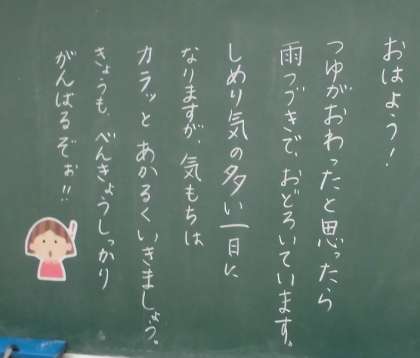 おはよう!
つゆがおわったと思ったら
雨つづきで、おどろいています。
しめり気の多い一日に
なりますが、気もちは
カラッと あかるくいきましょう。
きょうも、べんきょうしっかり
がんばるぞぉ!!